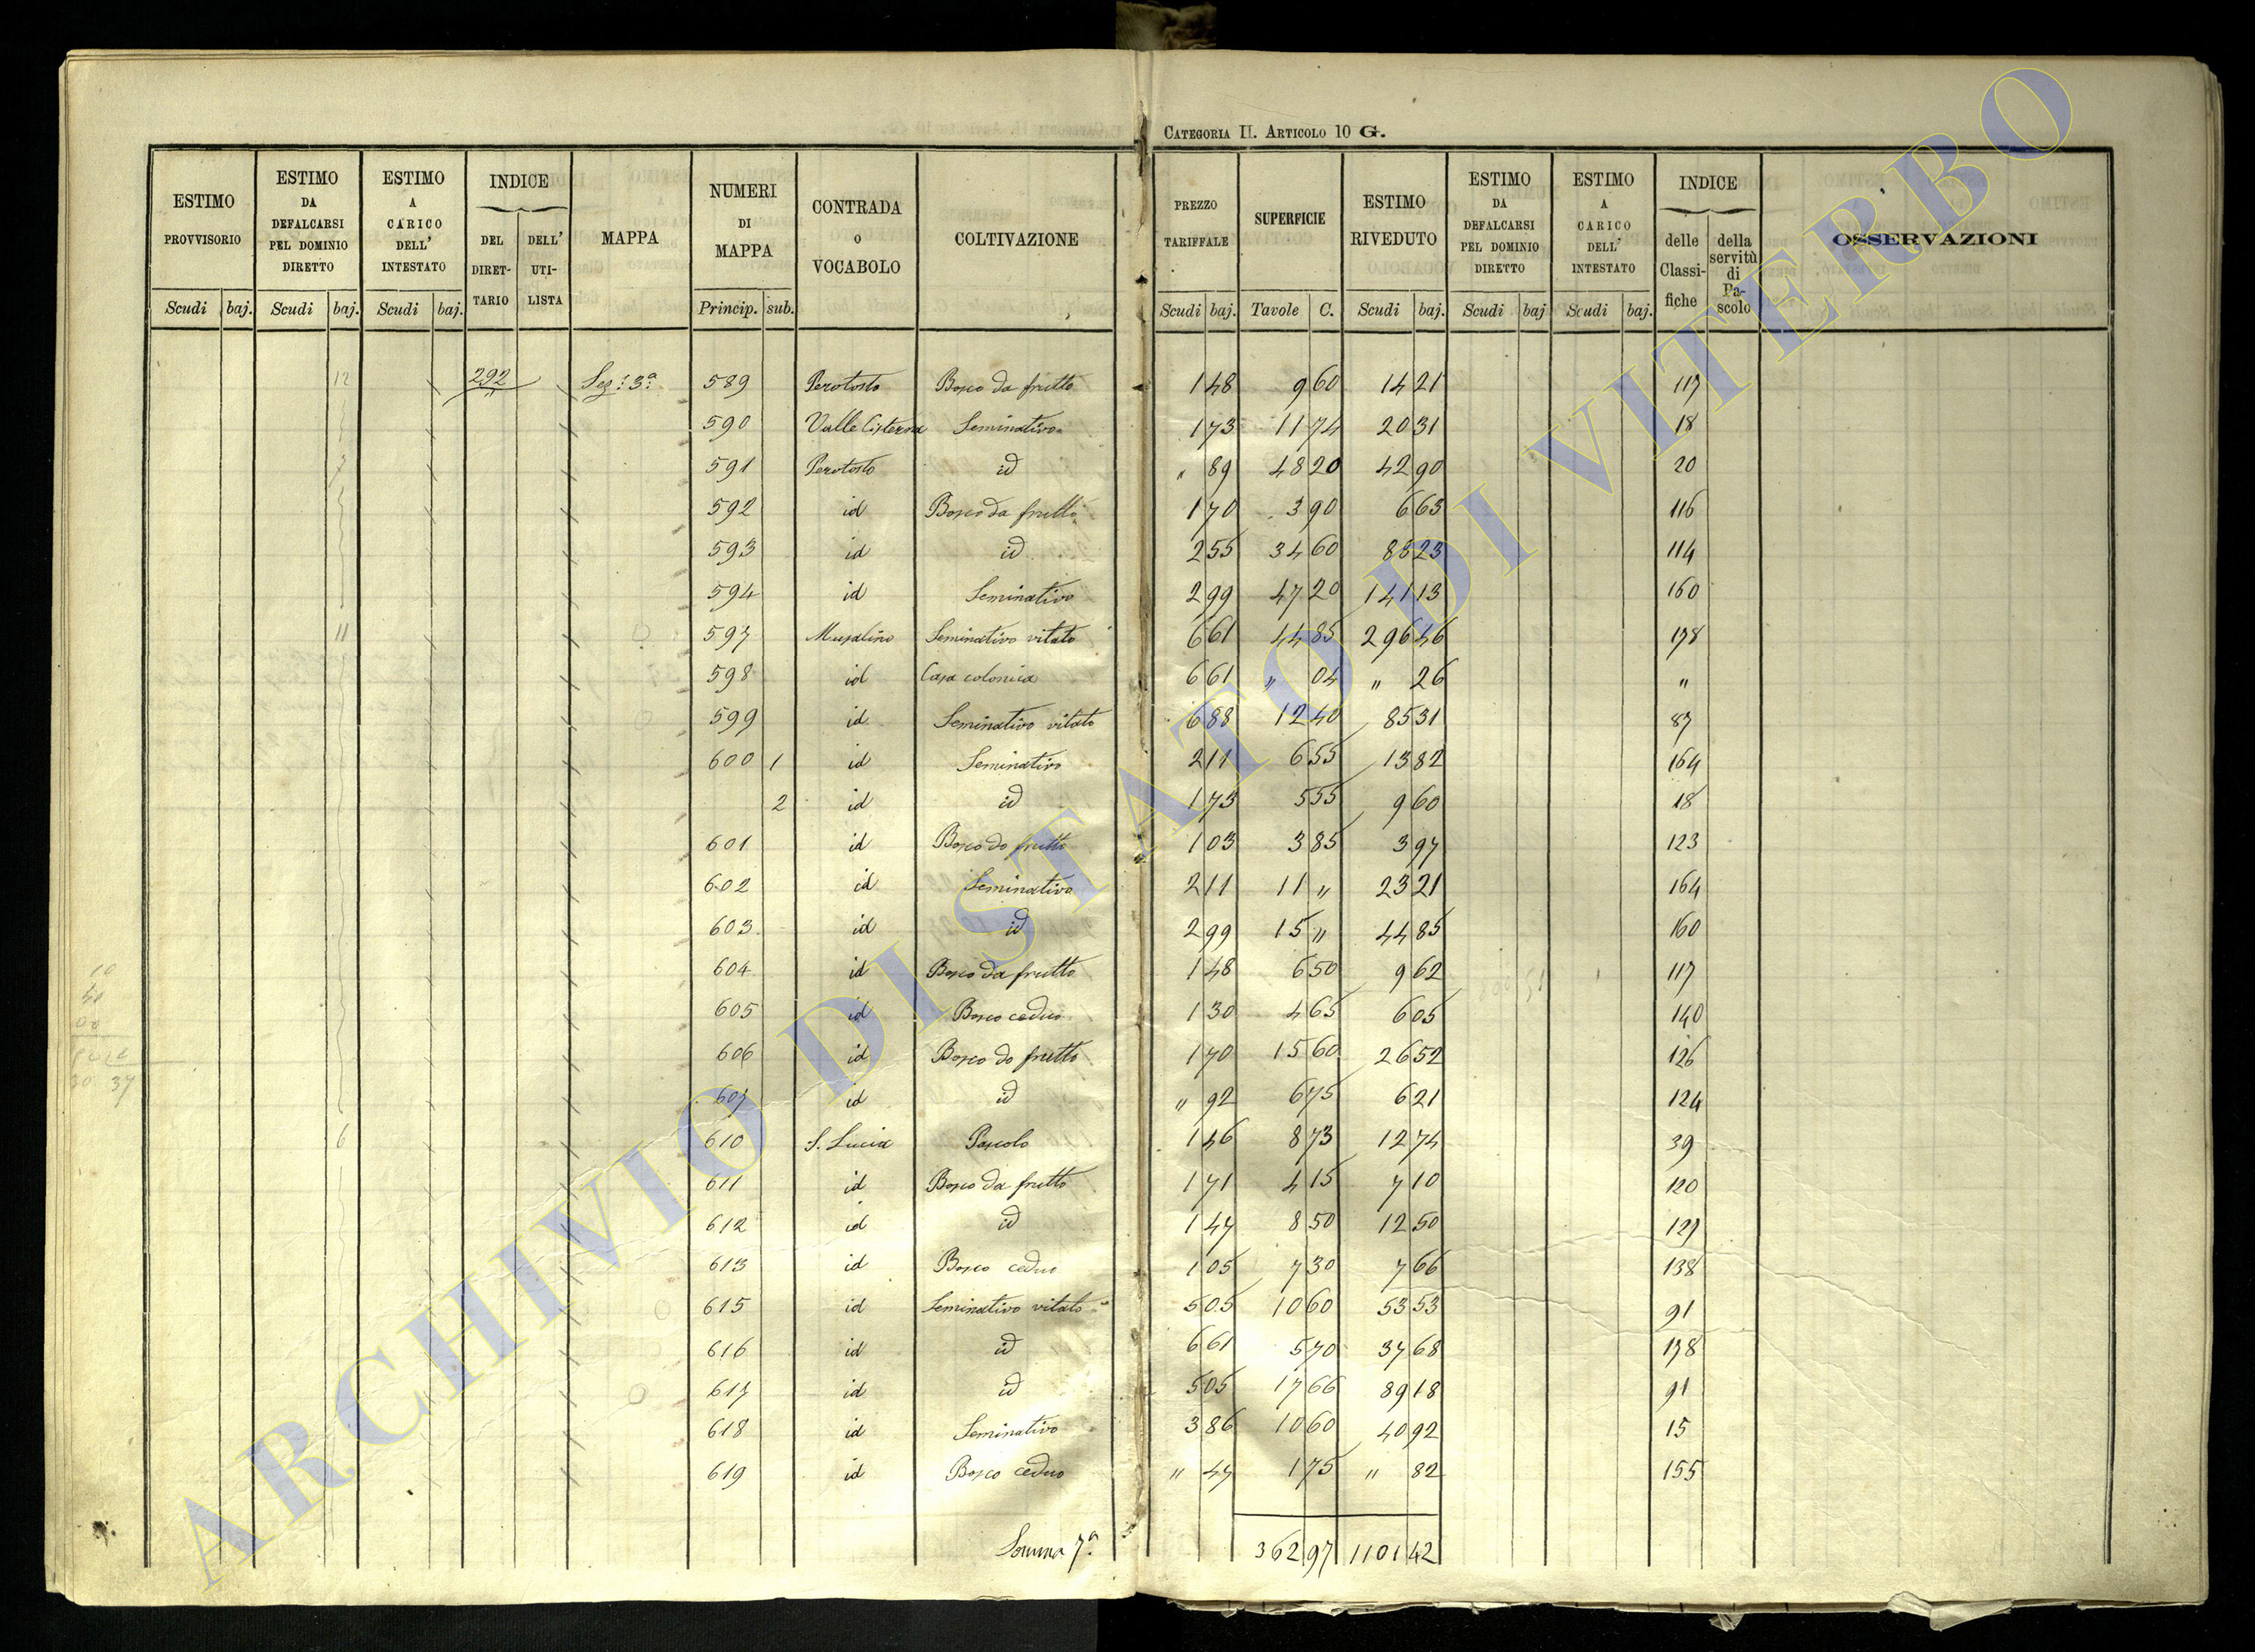 CATEGORIA II. ARTICOLO 10 G.
ESTIMO PROVVISORIO | ESTIMO DA DEFALCARSI PEL DOMINIO DIRETTO | ESTIMO A CARICO DELL' INTESTATO | INDICE DEL DIRET-TARIO | DELL' UTI-LISTA | MAPPA | NUMERI DI MAPPA | CONTRADA O VOCABOLO | COLTIVAZIONE | PREZZO TARIFFALE | SUPERFICIE | ESTIMO RIVEDUTO | ESTIMO DA DEFALCARSI PEL DOMINIO DIRETTO | ESTIMO A CARICO DELL' INTESTATO | INDICE delle Classi-fiche | della servitù di Pa-scolo | OSSERVAZIONI
Scudi baj. Scudi baj. Scudi baj. Princip. sub. Scudi baj. Tavole C. Scudi baj. Scudi baj Scudi baj.
12 292 Sez: 3ª 589 Perotosto Bosco da frutto 1 48 9 60 14 21 117
590 Valle Cisterna Seminativo 1 73 11 74 20 31 18
591 Perotosto id " 89 48 20 42 90 20
592 id Bosco da frutto 1 70 3 90 6 63 116
593 id id 2 55 34 60 88 23 114
594 id Seminativo 2 99 47 20 141 13 160
11 597 Musalino Seminativo vitato 6 61 44 85 296 46 178
598 id Casa colonica 6 61 " 04 " 26 "
599 id Seminativo vitato 6 88 12 40 85 31 87
600 1 id Seminativo 2 11 6 55 13 82 164
2 id id 1 73 5 55 9 60 18
601 id Bosco da frutto 1 03 3 85 3 97 123
602 id Seminativo 2 11 11 " 23 21 164
603 id id 2 99 15 " 44 85 160
604 id Bosco da frutto 1 48 6 50 9 62 117
605 id Bosco ceduo 1 30 4 65 6 05 140
606 id Bosco da frutto 1 70 15 60 26 52 126
607 id id " 92 6 75 6 21 124
6 610 S. Lucia Pascolo 1 46 8 73 12 74 39
611 id Bosco da frutto 1 71 4 15 7 10 120
612 id id 1 47 8 50 12 50 127
613 id Bosco ceduo 1 05 7 30 7 66 138
615 id Seminativo vitato 5 05 10 60 53 53 91
616 id id 6 61 5 70 37 68 178
617 id id 5 05 17 66 89 18 91
618 id Seminativo 3 86 10 60 40 92 15
619 id Bosco ceduo " 47 1 75 " 82 155
Somma 7ª 362 97 1101 42
ARCHIVIO DI STATO DI VITERBO